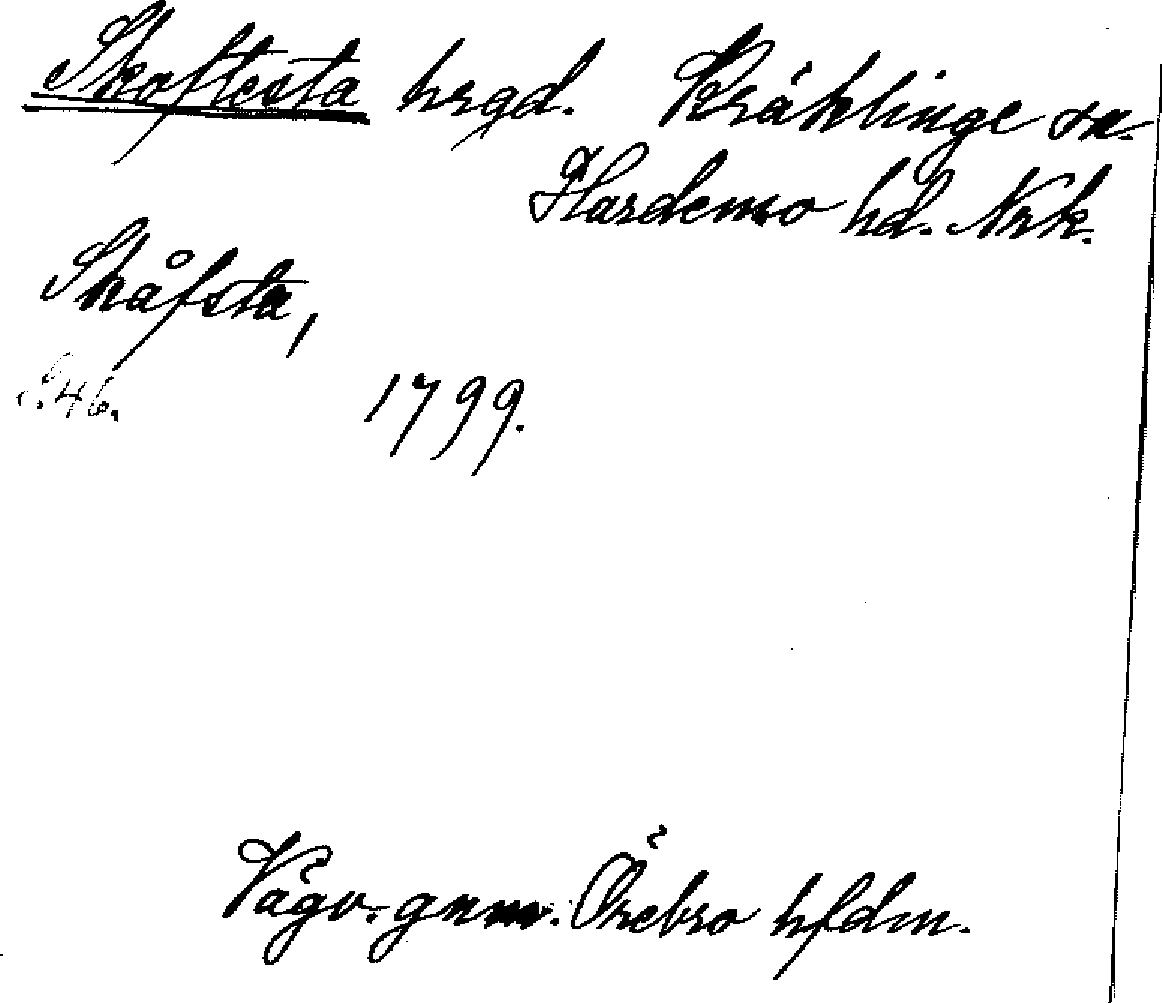 Skoftesta hrgd. Kräklinge sn.
Hardemo hd. Nrk.
Skåfsta,
s. 46.
1799.
Vägv. gnm. Örebro hfdm.